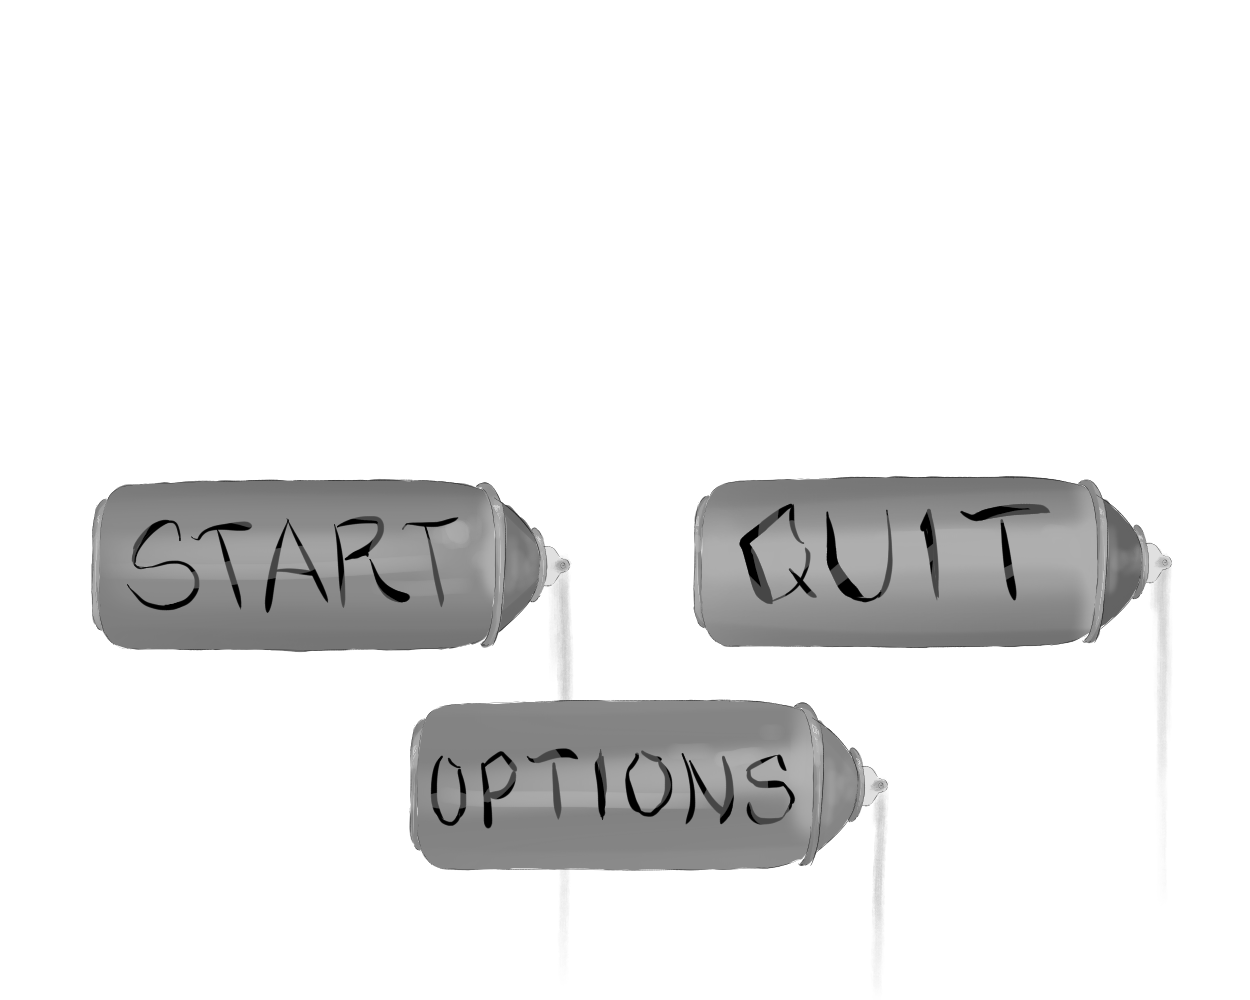 START
QUIT
OPTIONS